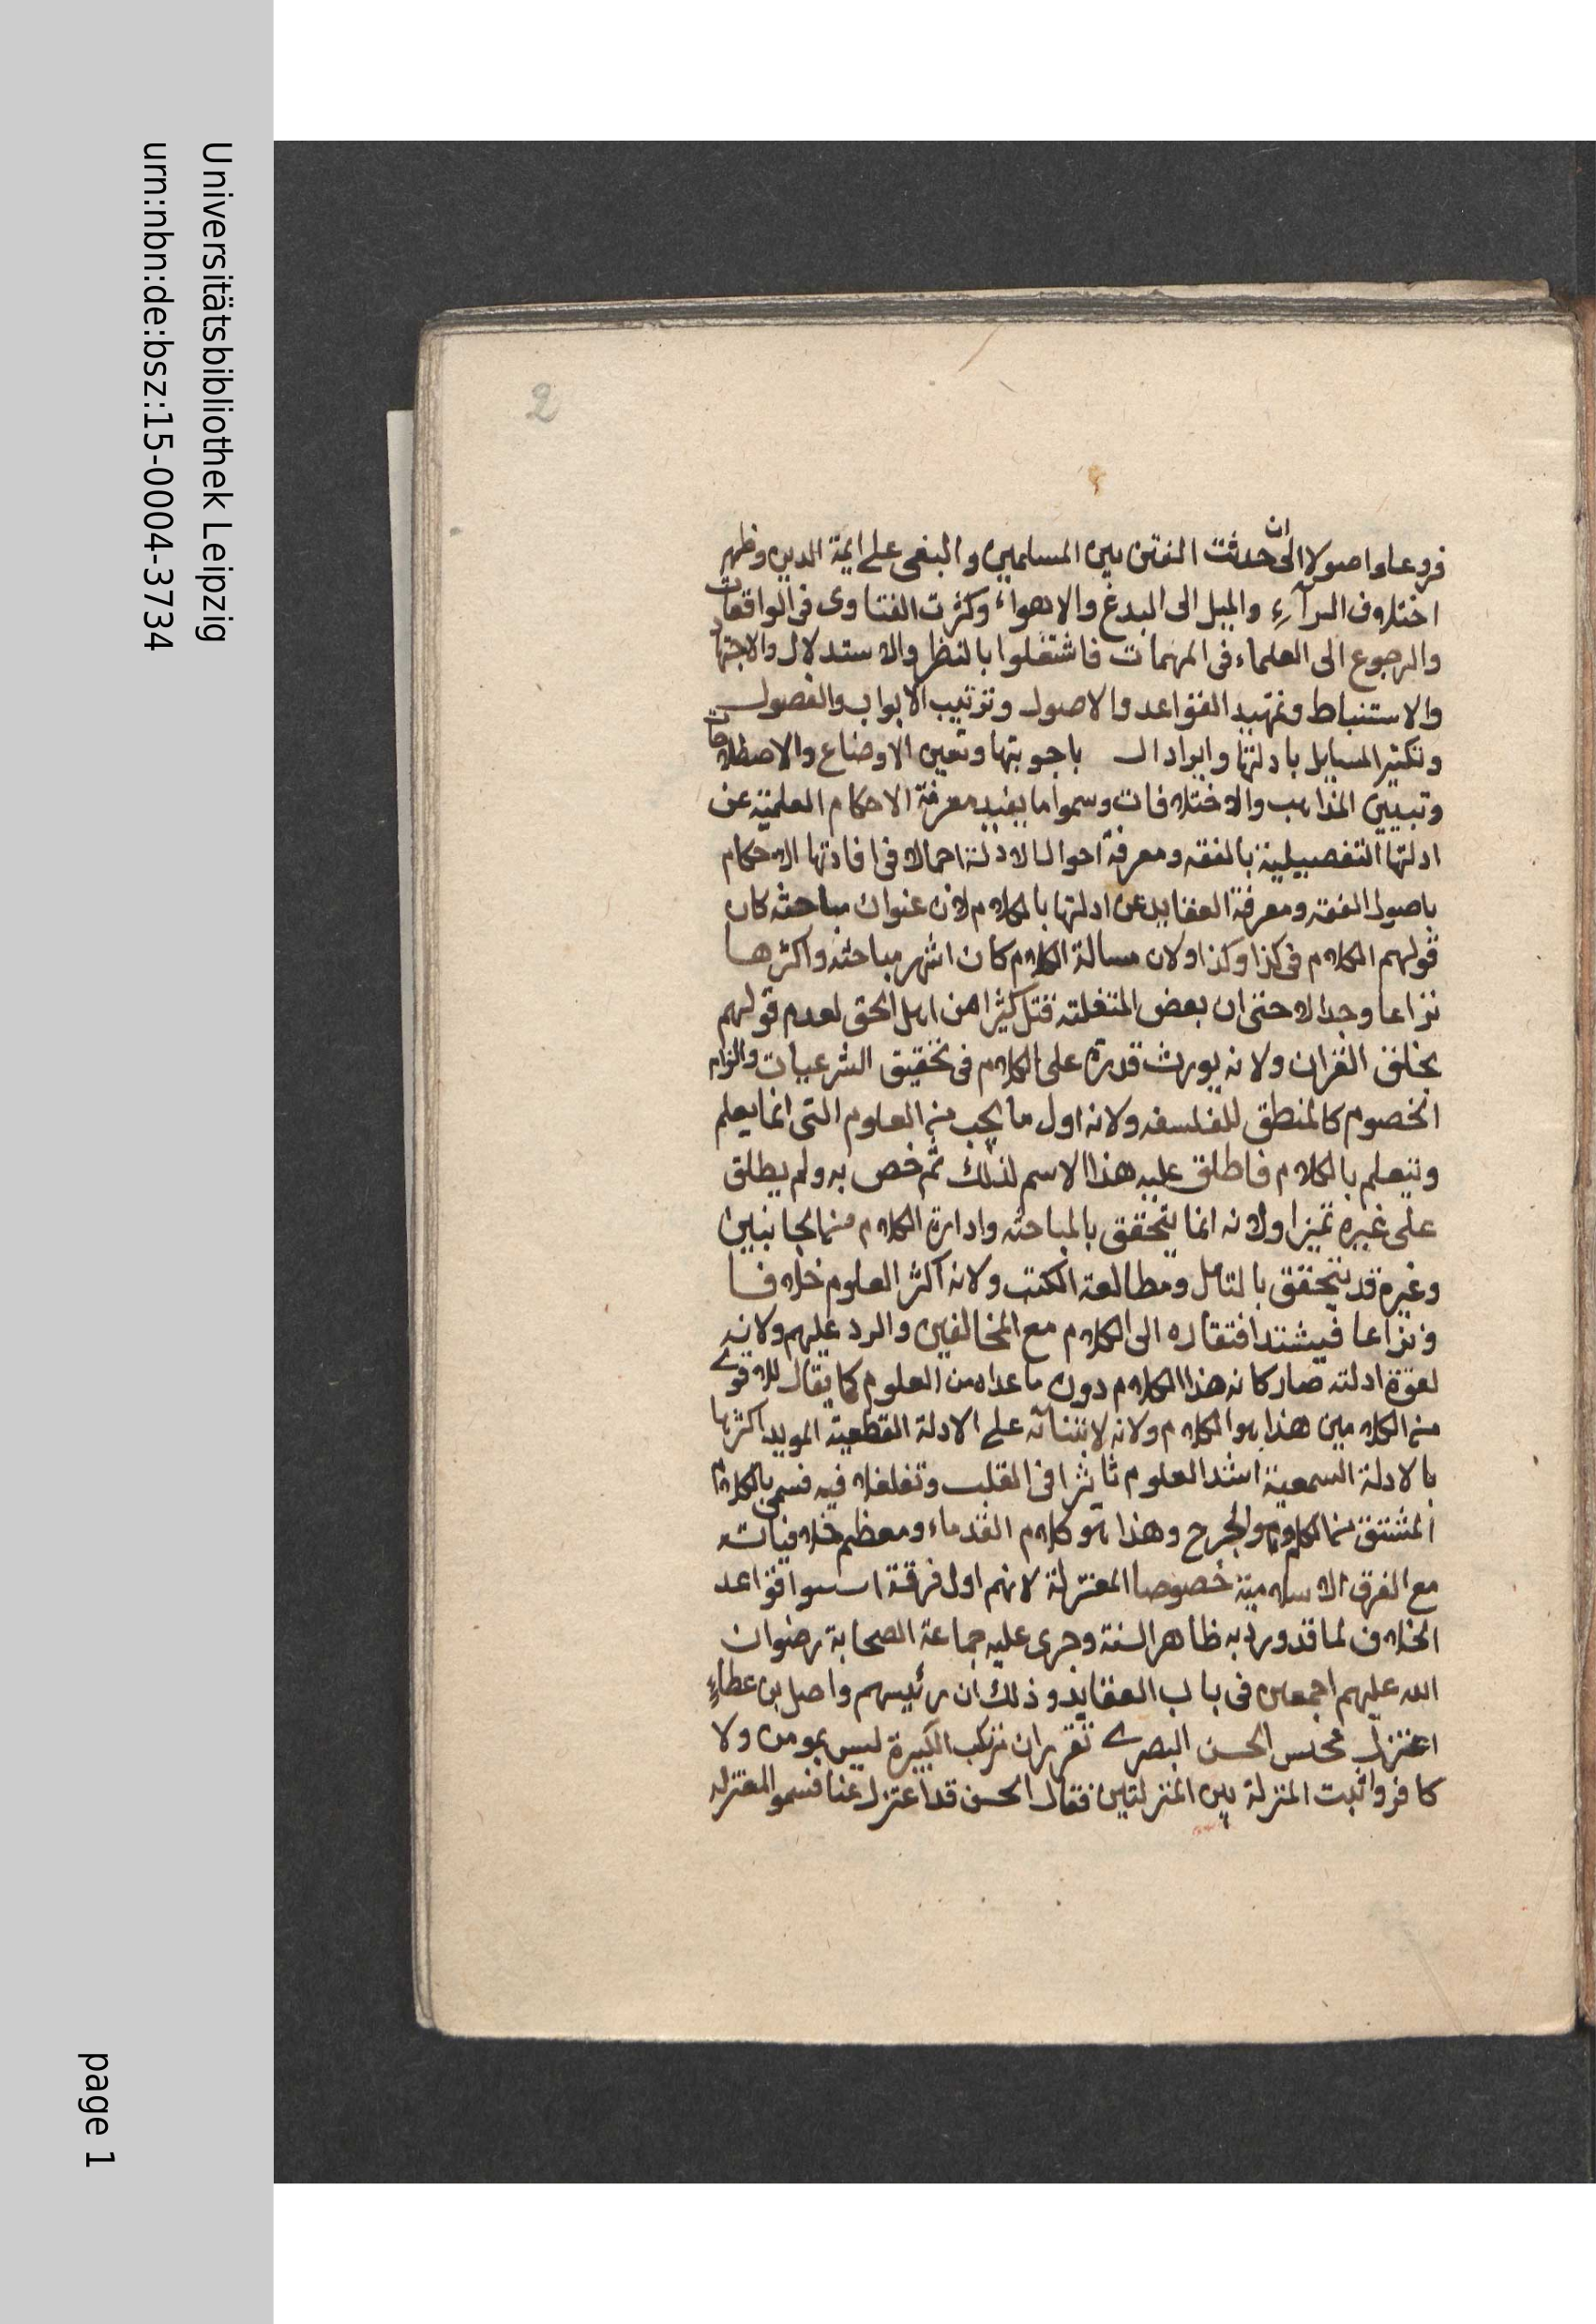 Universitätsbibliothek Leipzig
urn:nbn:de:bsz:15-0004-3734
page 1
2
فروعا واصولا الى ان حدثت الفتن بين المسلمين والبغى على ايمة الدين وظهر
اختلاف الرآء والميل الى البدع والاهواء وكثرت الفتاوى فى الواقعات
والرجوع الى العلماء فى المهمات فاشتغلوا بالنظر والاستدلال والاجتهاد
والاستنباط وتمهيد القواعد والاصول وترتيب الابواب والفصول
وتكثير المسايل بادلتها وايراد ال باجوبتها وتعين الاوضاع والاصطلاحات
وتبيين المذاهب والاختلافات وسموا ما يفيد معرفة الاحكام العلمية عن
ادلتها التفصيلية بالفقه ومعرفة احوال الادلة اجمالا فى افادتها الاحكام
باصول الفقه ومعرفة العقايد عن ادلتها بالكلام لان عنوان مباحثه كان
قولهم الكلام فى كذا وكذا ولان مسالة الكلام كان اشهر مباحثه واكثرها
نزاعا وجدالا حتى ان بعض المتغلبه قتل كثيرا من اهل الحق لعدم قولهم
بخلق القران ولانه يورث قدرة على الكلام فى تحقيق الشرعيات والزام
الخصوم كالمنطق للفلسفه ولانه اول ما يجب من العلوم التى انما يعلم
ويتعلم بالكلام فاطلق عليه هذا الاسم لذلك ثم خص به ولم يطلق
على غيره تميزا ولانه انما يتحقق بالمباحثه وادارة الكلام من الجانبين
وغيره قد يتحقق بالتامل ومطالعة الكتب ولانه اكثر العلوم خلافا
ونزاعا فيشتد افتقاره الى الكلام مع المخالفين والرد عليهم ولانه
لقوة ادلته صار كانه هذا الكلام دون ما عداه من العلوم كما يقال للاقوى
من الكلامين هذا هو الكلام ولانه لابتنائه على الادلة القطعية المويد اكثرها
بالادلة السمعية اشد العلوم تاثيرا فى القلب وتغلغلا فيه فسمى بالكلام
المشتق من الكلم وهو الجرح وهذا هو كلام القدماء ومعظم خلافياته
مع الفرق الاسلامية خصوصا المعتزلة لانهم اول فرقة اسسوا قواعد
الخلاف لما قد ورد به ظاهر السنة وجرى عليه جماعة الصحابة رضوان
الله عليهم اجمعين فى باب العقايد وذلك ان رئيسهم واصل بن عطاء
اعتزل مجلس الحسن البصرى تقرر ان مرتكب الكبيرة ليس بمومن ولا
كافر واثبت المنزلة بين المنزلتين فقال الحسن قد اعتزل عنا فسموا المعتزله